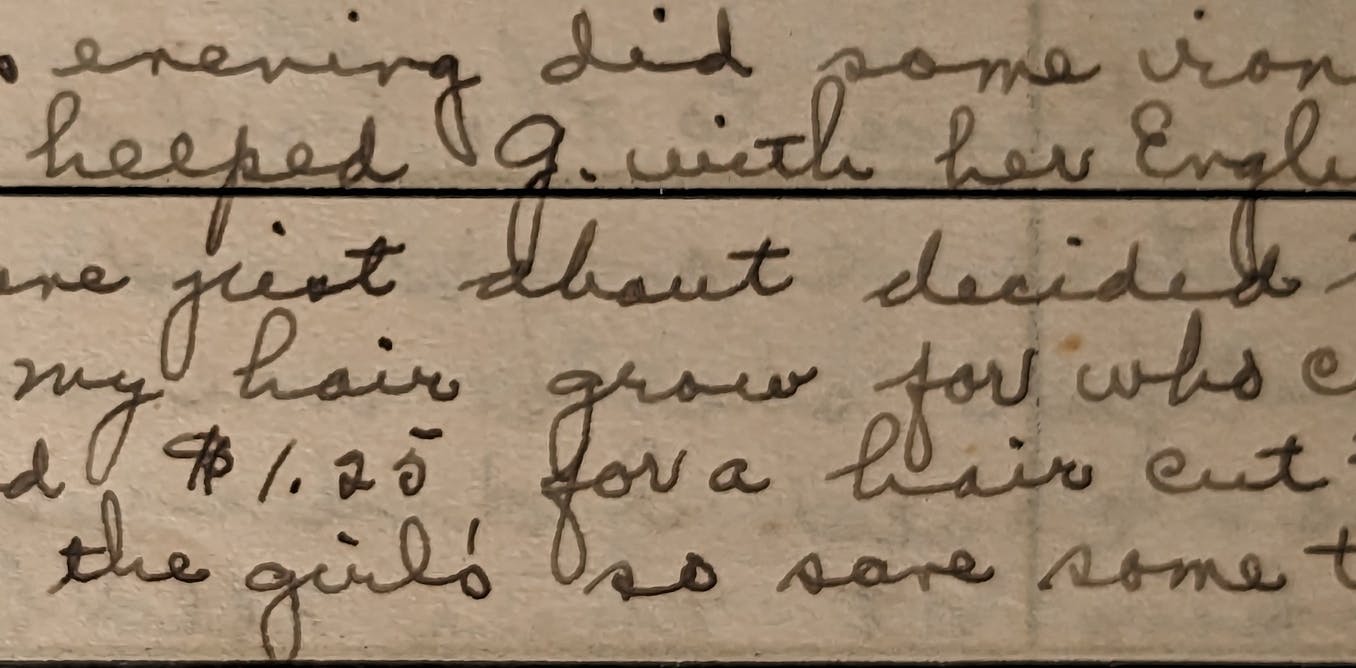 evening did some iron
helped G. with her Engli
ave just about decided
my hair grow for who c
d $1.25 for a hair cut
the girl's so save some t